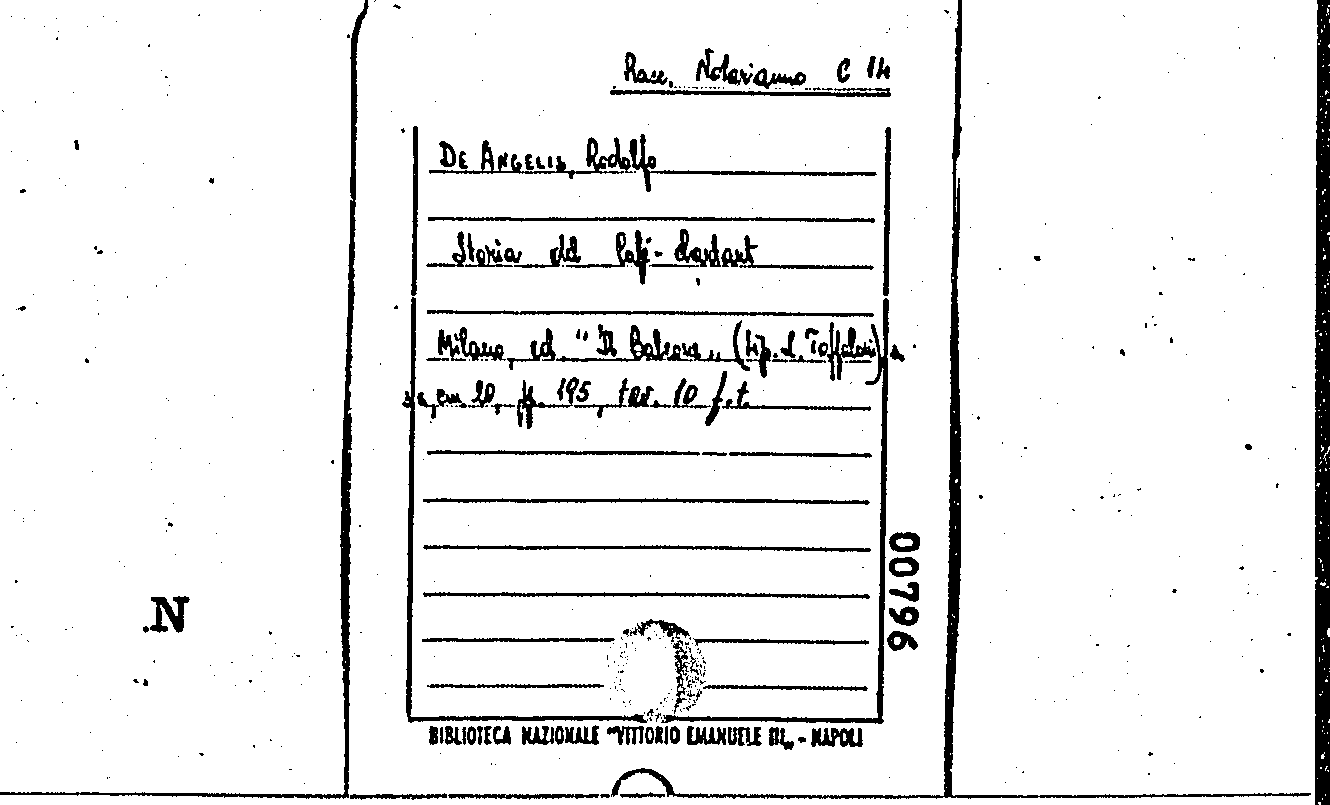 Racc. Notarianno C 14
DE ANGELIS, Rodolfo
Storia del Café-chantant
Milano, ed. "Il Balcone„ (tip. L. Toffaloni), s.
cm. 20, pp. 195, tav. 10 f.t.
007796
N
BIBLIOTECA NAZIONALE "VITTORIO EMANUELE III„ - NAPOLI